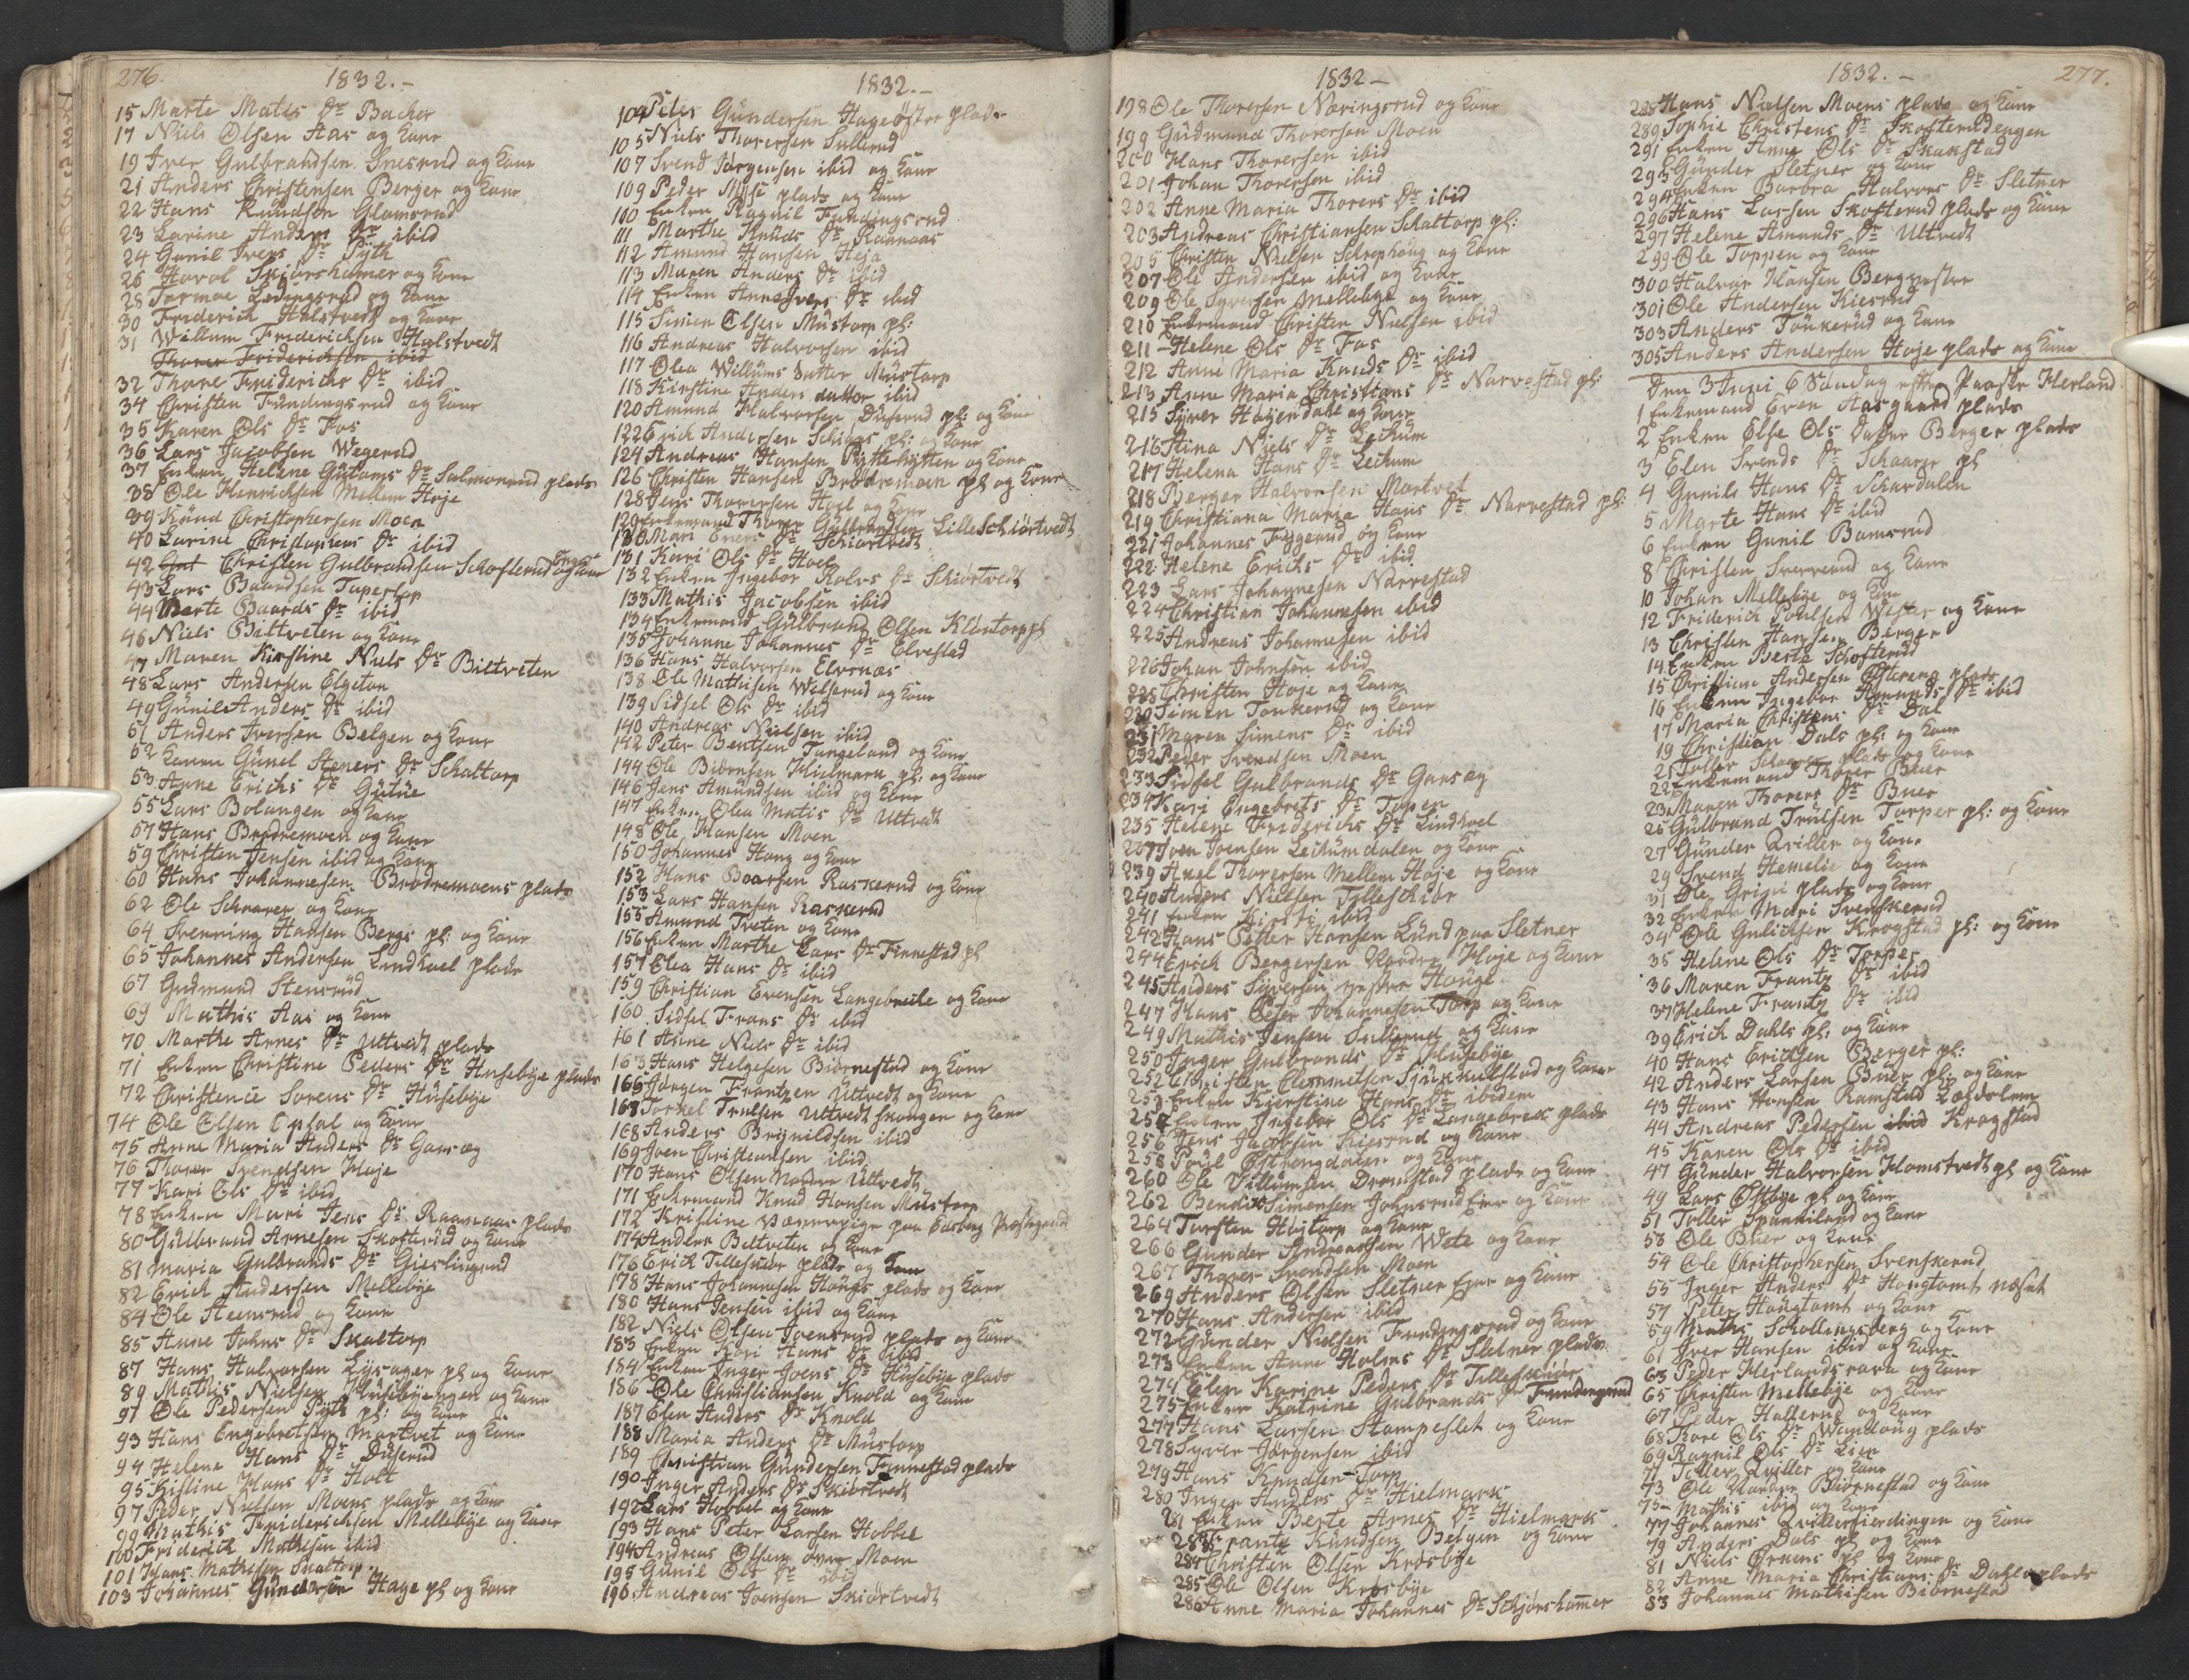 276.
1832.-
15 Marte Matis Dr Backer
17 Niels Olsen Aas og Kone
19 Iver Gulbrandsen Snesrud og Kone
21 Anders Christensen Berger og Kone
22 Hans Knudsen Glomsrud
23 Larine Anders Dr ibid
24 Gunil Ivers Dr Pyth
26 Havol Skiörshamer og Kone
28 Tormoe Ledingsrud og Kone
30 Friderich Halstvedt og Kone
31 Willum Friderichsen Halstvedt
Thorer Friderichsen ibid
32 Thore Friderichs Dr ibid
34 Christen Fundingsrud og Kone
35 Karen Ols Dr Fos
36 Lars Jacobsen Wegerud
37 Enken Helene Gutorms Dr Salmonrud plads
38 Ole Henrichsen Mellem Høje
39 Knud Christophersen Moen
40 Larine Christophers Dr ibid
42 Christen Gulbrandsen Schofterud Eng og Kone
43 Lars Baardsen Tapertop
44 Marte Baards Dr ibid
46 Niels Biltveten og Kone
47 Maren Kirstine Niels Dr Biltveten
48 Lars Andersen Elgeton
49 Gunil Anders Dr ibid
51 Anders Iversen Belgen og Kone
52 Konen Gunel Steners Dr Schaltorp
53 Anne Erichs Dr Gutue
55 Lars Bolangen og Kone
57 Hans Brødremoen og Kone
59 Christen Jensen ibid og Kone
60 Hans Johannesen Brødremoens plads
62 Ole Schaarer og Kone
64 Svenning Hansen Bergs pl: og Kone
65 Johannes Andersen Lindhoel plads
67 Gudmund Stensrud
69 Mathis Aas og Kone
70 Marthe Arnes Dr Ultvedt plads
71 Enken Christine Peders Dr Husebye plads
72 Christence Sorens Dr Husebye
74 Ole Olsen Opsal og Kone
75 Anne Maria Anders Dr Gaasøg
76 Thorer Svendsen Høje
77 Kari Ols Dr ibid
78 Enken Mari Jens Dr Raanaas plads
80 Gulbrand Arnesen Skofterud og Kone
81 Maria Gulbrands Dr Gieslingrud
82 Erich Andersen Mellebye
84 Ole Steensrud og Kone
85 Anne Johns Dr Skaltorp
87 Hans Halvorsen Lysager pl og Kone
89 Mathis Nielsen Husebyengen og Kone
91 Ole Pedersen Pyth pl: og Kone
93 Hans Engebretsen Martvet og Kone
94 Helene Hans Dr Duserud
95 Kistine Hans Dr Holt
97 Peder Nielsen Moens plads og Kone
99 Mathis Friderichsen Mellebye og Kone
100 Friderich Mathisen ibid
101 Hans Mathisen Skaltorp
103 Johannes Gundersen Hage pl og Kone
1832.-
104 Peter Gundersen Hageöstre plads
105 Niels Thoresen Sullerud
107 Svend Jörgensen ibid og Kone
109 Peder Myse plads og Kone
110 Enken Ragnil Fundingsrud
111 Marthe Knuds Dr Raanaas
112 Amund Hansen Heja
113 Maren Anders Dr ibid
114 Enken Anne Ivers Dr ibid
115 Simen Olsen Mustorp pl:
116 Andreas Halvorsen ibid
117 Olea Willums datter Mustorp
118 Kirstine Anders datter ibid
120 Amund Halvorsen Duserud pl: og Kone
122 Erich Andersen Schiøns pl: og Kone
124 Andreas Hansen Pyttehytten og Kone
126 Christen Hansen Brødremoen pl og Kone
128 Jens Thoresen Hoel og Kone
129 Enkemand Thorer Gulbrandsen Lilleschiörtvedt
130 Mari Eners Dr Schiörtvedt
131 Kari Ols Dr Hoel
132 Enken Ingebor Rolvs Dr Schiörtvedt
133 Mathis Jacobsen ibid
134 Enkemand Gulbrand Olsen Klontorp pl
135 Johanne Johannes Dr Elvestad
136 Hans Halvorsen Elvsnæs
138 Ole Mathisen Wilserud og Kone
139 Sidsel Ols Dr ibid
140 Andreas Nielsen ibid
142 Peter Bentsen Tangeland og Kone
144 Ole Biörnsen Hielmark pl: og Kone
146 Jens Amundsen ibid og Kone
147 Enken Olea Matis Dr Ultvedt
148 Ole Hansen Moen
150 Johannes Haug og Kone
152 Hans Boarsen Raskerud og Kone
153 Lars Hansen Raskerud
155 Amund Tveten og Kone
156 Enken Marthe Lars Dr Finnestad pl
157 Olea Hans Dr ibid
159 Christian Evensen Langebreile og Kone
160 Sidsel Frans Dr ibid
161 Anne Niels Dr ibid
163 Hans Helgesen Biörnestad og Kone
165 Jörgen Frantzen Ultvedt og Kone
167 Torkel Truelsen Ultvedt skougen og Kone
168 Anders Brynildsen ibid
169 Joen Christiansen ibid
170 Hans Olsen Nordre Ultvedt
171 Enkemand Knud Hansen Mustorp
172 Kristine Væverpige paa Edsberg Præstegaard
174 Anders Biltveten og Kone
176 Erich Tilleskiör plads og Kone
178 Hans Johannesen Haugs plads og Kone
180 Hans Jensen ibid og Kone
182 Niels Olsen Joensrud plads og Kone
183 Enken Kari Hans Dr ibid
184 Enken Inger Joens Dr Husebye plads
186 Ole Christiansen Knold og Kone
187 Elen Anders Dr Knold
188 Maria Anders Dr Mustorp
189 Christian Gundersen Finnestad plads
190 Inger Anders Dr Skiörtvedt
192 Lars Hobbel og Kone
193 Hans Peter Larsen Hobbel
194 Andreas Olsen övre Moen
195 Gunil Ols Dr ibid
196 Andreas Joensen Skiörtvedt
1832-
198 Ole Thoresen Næringsrud og Kone
199 Gudmund Thorersen Moen
200 Hans Thorersen ibid
201 Johan Thorersen ibid
202 Anne Maria Thorers Dr ibid
203 Andreas Christiansen Schaltorp pl:
205 Christen Nielsen Schrephaug og Kone
207 Ole Andersen ibid og Kone
209 Ole Syversen Mellebye og Kone
210 Enkemand Christen Nielsen ibid
211 Helene Ols Dr Fos
212 Anne Maria Knuds Dr ibid
213 Anne Maria Christians Dr Narvestad pl:
215 Syver Hagendale og Kone
216 Stina Niels Dr Lechum
217 Helena Hans Dr Lechum
218 Berger Halvorsen Martvet
219 Christiana Maria Hans Dr Narvestad pl:
221 Johannes Tryggerud og Kone
222 Helene Erichs Dr ibid
223 Lars Johannesen Narvestad
224 Christian Johannesen ibid
225 Andreas Johannesen ibid
226 Johan Johnsen ibid
228 Christen Høje og Kone
230 Simen Tonkerud og Kone
231 Maren Simens Dr ibid
232 Peder Svendsen Moen
233 Sidsel Gulbrands Dr Gaasøg
234 Kari Engebrets Dr Topen
235 Helene Friderichs Dr Lindhoel
237 Joen Joensen Lechumdalen og Kone
239 Axel Thorersen Mellem Høje og Kone
240 Anders Nielsen Tylleschiör
241 Enken Kirsti ibid
242 Hans Petter Hansen Lund paa Sletner
244 Erich Bergersen Nordre Høje og Kone
245 Anders Syversen vestre Houge
247 Hans Peter Johannesen Torp og Kone
249 Mathis Jensen Sullerud og Kone
250 Inger Gulbrands Dr Husebye
252 Christen Clemmetsen Sjukkulstad og Kone
253 Enken Kierstine Hans Dr ibidem
254 Enken Ingebor Ols Dr Langebrek plads
256 Jens Jacobsen Kiesrud og Kone
258 Poul Østrengdalen og Kone
260 Ole Villumsen Dramstad plads og Kone
262 Bendix Simensen Johnsrud Eier og Kone
264 Torsten Høytorp og Kone
266 Gunder Andreassen Wete og Kone
267 Thorer Svendsen Moen
269 Anders Olsen Sletner Eier og Kone
270 Hans Andersen ibid
272 Gunder Nielsen Fundingsrud og Kone
273 Enken Anne Holms Dr Sletner plads
274 Elen Karine Peders Dr Tilleskiör
275 Enken Katrine Gulbrands Dr Fundingsrud
277 Hans Larsen Stampeslet og Kone
278 Syver Jörgensen ibid
279 Hans Knudsen Torp
280 Inger Anders Dr Hielmark
281 Enken Berte Arnes Dr Hielmark
283 Frants Knudsen Belgen og Kone
284 Christen Olsen Krosbye
285 Ole Olsen Krosbye
286 Anne Maria Johannes Dr Schjörshammer
1832.-
277.
288 Hans Nielsen Moens plads og Kone
289 Sophie Christens Dr Skofterudengen
291 Enken Anne Ols Dr Skakstad
293 Gunder Sletner og Kone
294 Enken Barbra Halvors Dr Sletner
296 Hans Larsen Skofterud plads og Kone
297 Helene Amunds Dr Ultvedt
299 Ole Toppen og Kone
300 Halvor Hansen Berg vestre
301 Ole Andersen Kiesrud
303 Anders Tonkerud og Kone
305 Anders Andersen Høje plads og Kone
Den 3 Juni 6 Søndag efter Paaske Herland
1 Enkemand Even Aasgaard plads
2 Enken Else Ols Datter Berger plads
3 Elen Svends Dr Schaarer pl
4 Gunild Hans Dr Schardalen
5 Marte Hans Dr ibid
6 Enken Gunil Bamsrud
8 Christen Sververud og Kone
10 Johan Mellebye og Kone
12 Friderich Poulsen Wester og Kone
13 Christen Hansen Berger
14 Enken Berte Schofterud
15 Christian Andersen Østereng plads
16 Enken Ingebor Amunds Dr ibid
17 Maria Christens Dr Dal
19 Christian Dals pl: og Kone
21 Toller Schaarer plads og Kone
22 Enkemand Thorer Buer
23 Maren Thorers Dr Buer
25 Gulbrand Trulsen Torper pl: og Kone
27 Gunder Qviller og Kone
29 Svend Hemelie og Kone
31 Ole Gripi plads og Kone
32 Enken Mari Svenskerud
34 Ole Gulichsen Krogstad pl: og Kone
35 Helene Ols Dr Torper
36 Maren Frants Dr ibid
37 Helene Frants Dr ibid
39 Erich Dahls pl: og Kone
40 Hans Erichsen Berger pl:
42 Anders Larsen Buer pl: og Kone
43 Hans Hansen Ramstad Lægdslem
44 Andreas Pedersen ibid Krogstad
45 Karen Ols Dr ibid
47 Gunder Halvorsen Homstvedt pl og Kone
49 Lars Østbye pl og Kone
51 Toller Spanniland og Kone
53 Ole Buer og Kone
54 Ole Christophersen Svenskerud
55 Inger Anders Dr Hougtomt næset
57 Peter Hougtomt og Kone
59 Mathis Schollingsberg og Kone
61 Iver Hansen ibid og Kone
63 Peder Herlandsrara og Kone
65 Christen Mellebye og Kone
67 Peder Hallerud og Kone
68 Thore Ols Dr Wandoug plads
69 Ragnil Ols Dr Lien
71 Toller Qviller og Kone
73 Ole Nordre Biörnestad og Kone
75 Mathis ibid og Kone
77 Johannes Qvillerfierdingen og Kone
79 Anders Dals pl og Kone
81 Niels Ørkens pl og Kone
82 Anne Maria Christians Dr Dahls plads
83 Johannes Mathisen Biörnestad